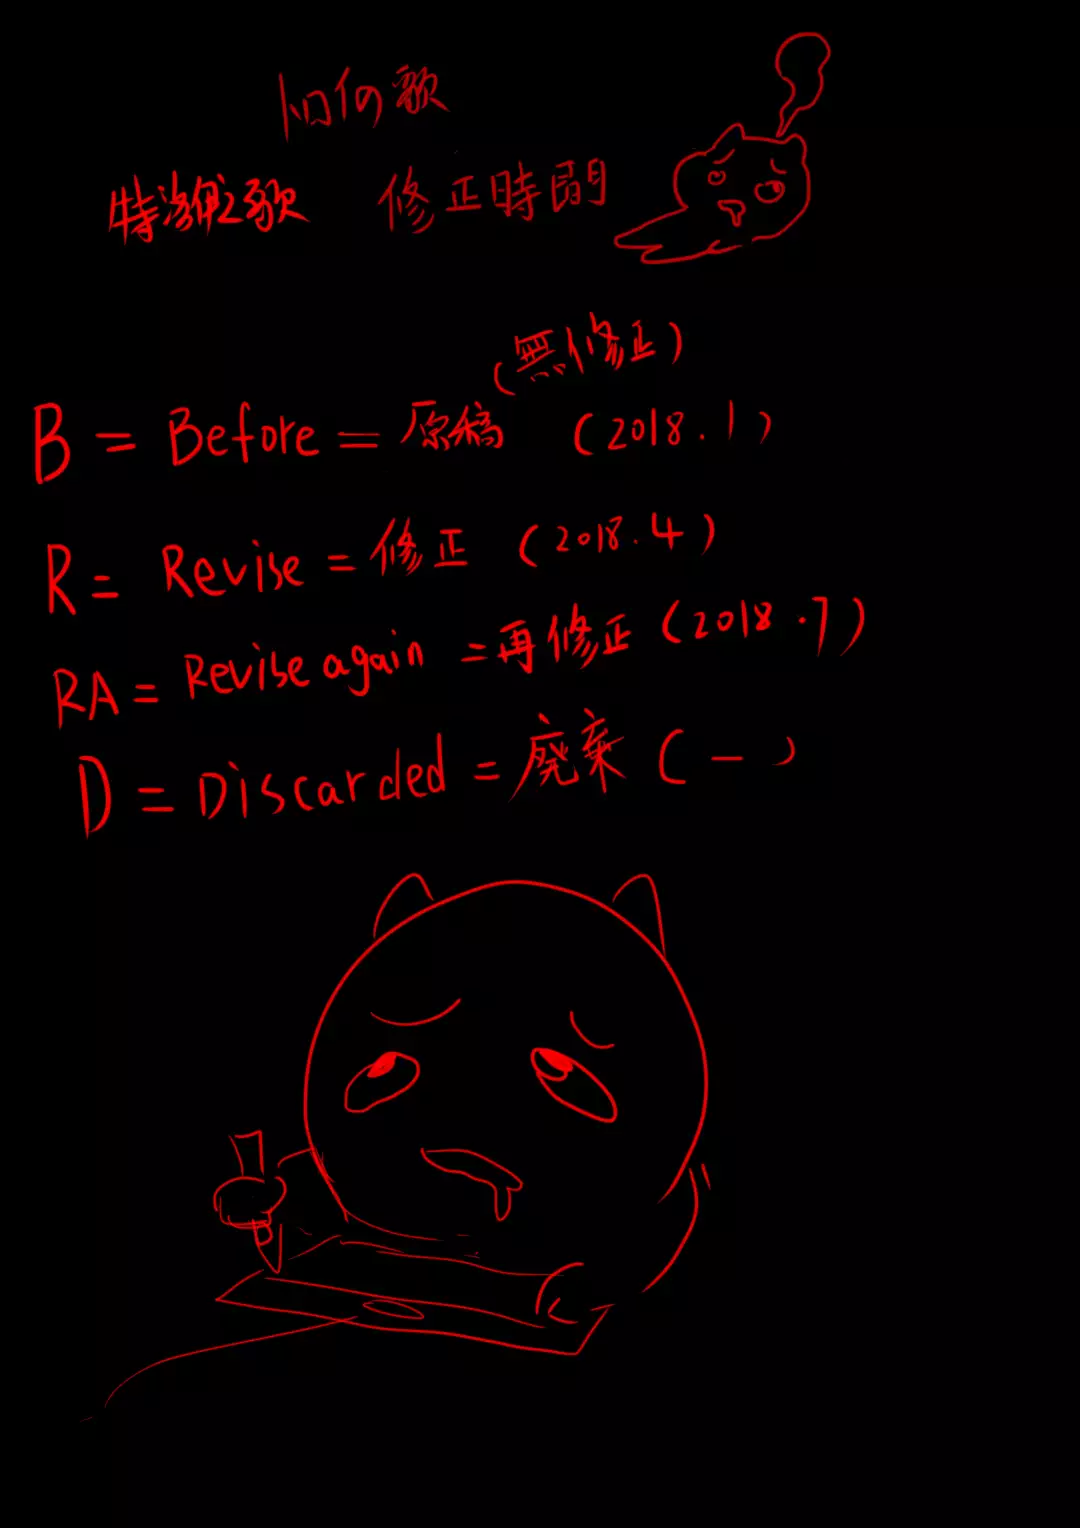 特洛伊之歌 修正時間
(無修正)
B = Before = 原稿 (2018.1)
R = Revise = 修正 (2018.4)
RA = Revise again = 再修正 (2018.7)
D = Discarded = 廃棄 (-)